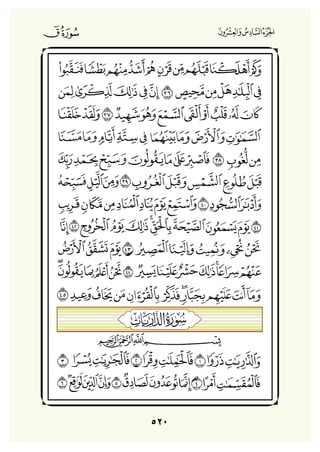 الجزء السادس والعشرون سورة ق
وكم أهلكنا قبلهم من قرن هم أشد منهم بطشا فنقبوا
في البلاد هل من محيص ٣٦ إن في ذلك لذكرى لمن
كان له قلب أو ألقى السمع وهو شهيد ٣٧ ولقد خلقنا
السموات والأرض وما بينهما في ستة أيام وما مسنا
من لغوب ٣٨ فاصبر على ما يقولون وسبح بحمد ربك
قبل طلوع الشمس وقبل الغروب ٣٩ ومن اليل فسبحه
وأدبر السجود ٤٠ واستمع يوم يناد المناد من مكان قريب
٤١ يوم يسمعون الصيحة بالحق ذلك يوم الخروج ٤٢ إنا
نحن نحي ونميت وإلينا المصير ٤٣ يوم تشقق الأرض
عنهم سراعا ذلك حشر علينا يسير ٤٤ نحن أعلم بما يقولون
وما أنت عليهم بجبار فذكر بالقرءان من يخاف وعيد ٤٥
سورة الذاريات
بسم الله الرحمن الرحيم
والذريت ذروا ١ فالحملت وقرا ٢ فالجريت يسرا ٣
فالمقسمت أمرا ٤ إنما توعدون لصادق ٥ وإن الدين لوقع ٦
٥٢٠